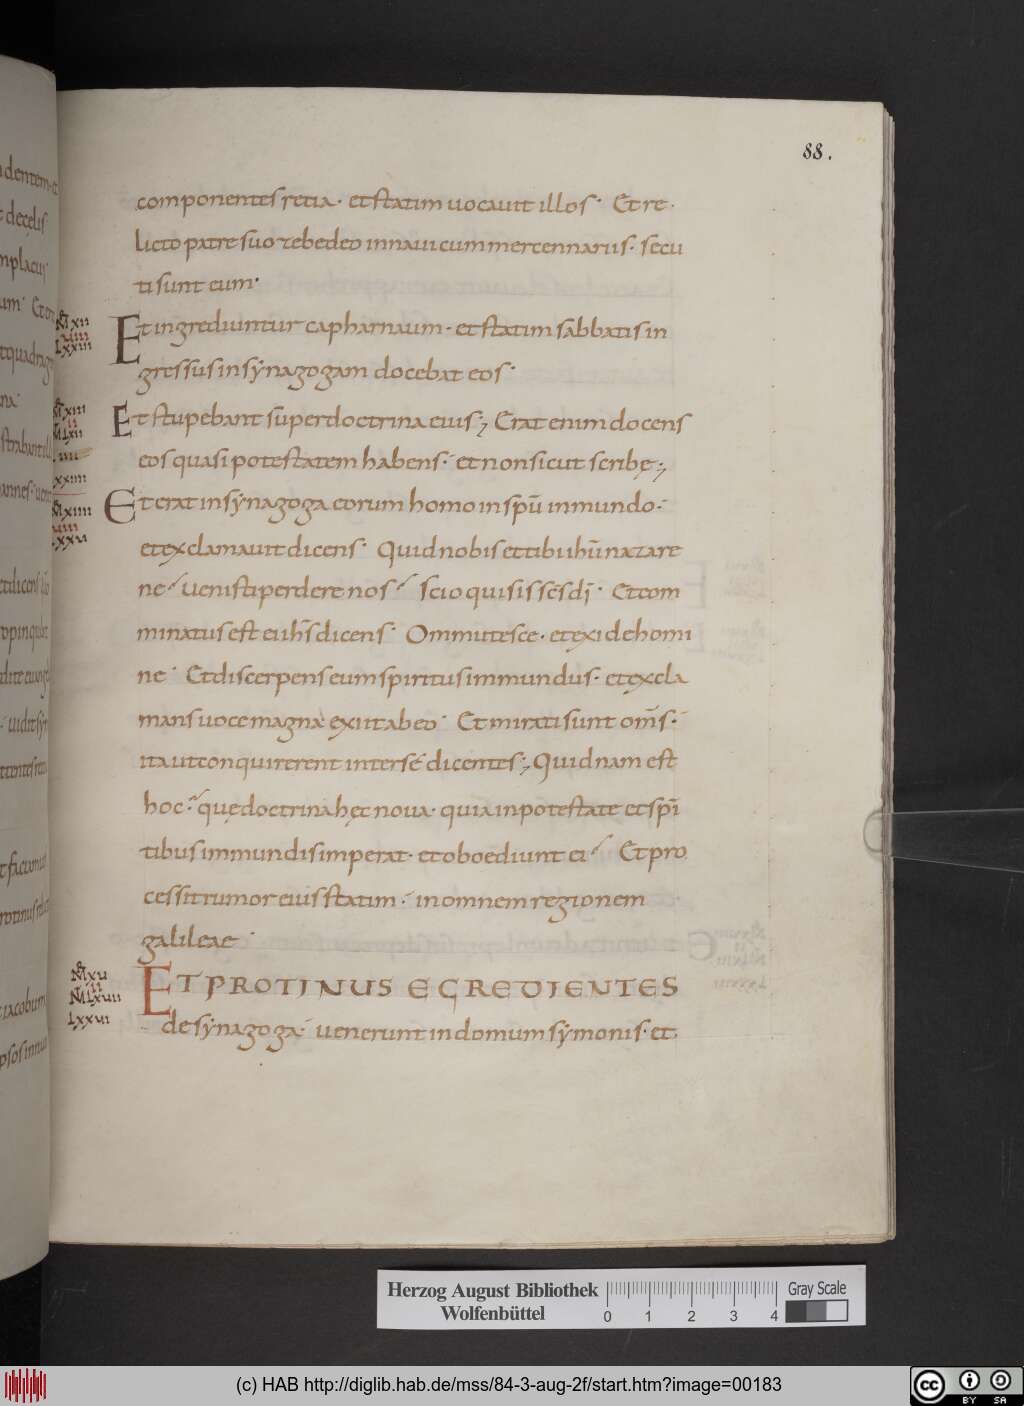 88.
componentes retia· et statim uocauit illos· Et re·
licto patre suo zebedeo in naui cum mercennariis· secu
ti sunt eum·
Et ingrediuntur capharnaum· et statim sabbatis in
gressus in synagogam docebat eos·
Et stupebant super doctrina eius; Erat enim docens
eos quasi potestatem habens· et non sicut scribę;
Et erat in synagoga eorum homo in spū inmundo·
et exclamauit dicens· Quid nobis et tibi ihū nazare
ne uenisti perdere nos scio qui sis sc̄s dī· Et com
minatus est ei ih̄s dicens· Ommutesce· et exi de homi
ne· Et discerpens eum spiritus immundus· et excla
mans uoce magna exiit ab eo· Et mirati sunt om̄s·
ita ut conquirerent inter se dicentes; Quidnam est
hoc· quę doctrina hęc noua· quia in potestate et spī
tibus immundis imperat· et oboediunt ei Et pro
cessit rumor eius statim· in omnem regionem
galileae·
ET PROTINUS EGREDIENTES
de synagoga· uenerunt in domum symonis· et
Herzog August Bibliothek
Wolfenbüttel
0 1 2 3 4
Gray Scale
(c) HAB http://diglib.hab.de/mss/84-3-aug-2f/start.htm?image=00183
cc BY SA